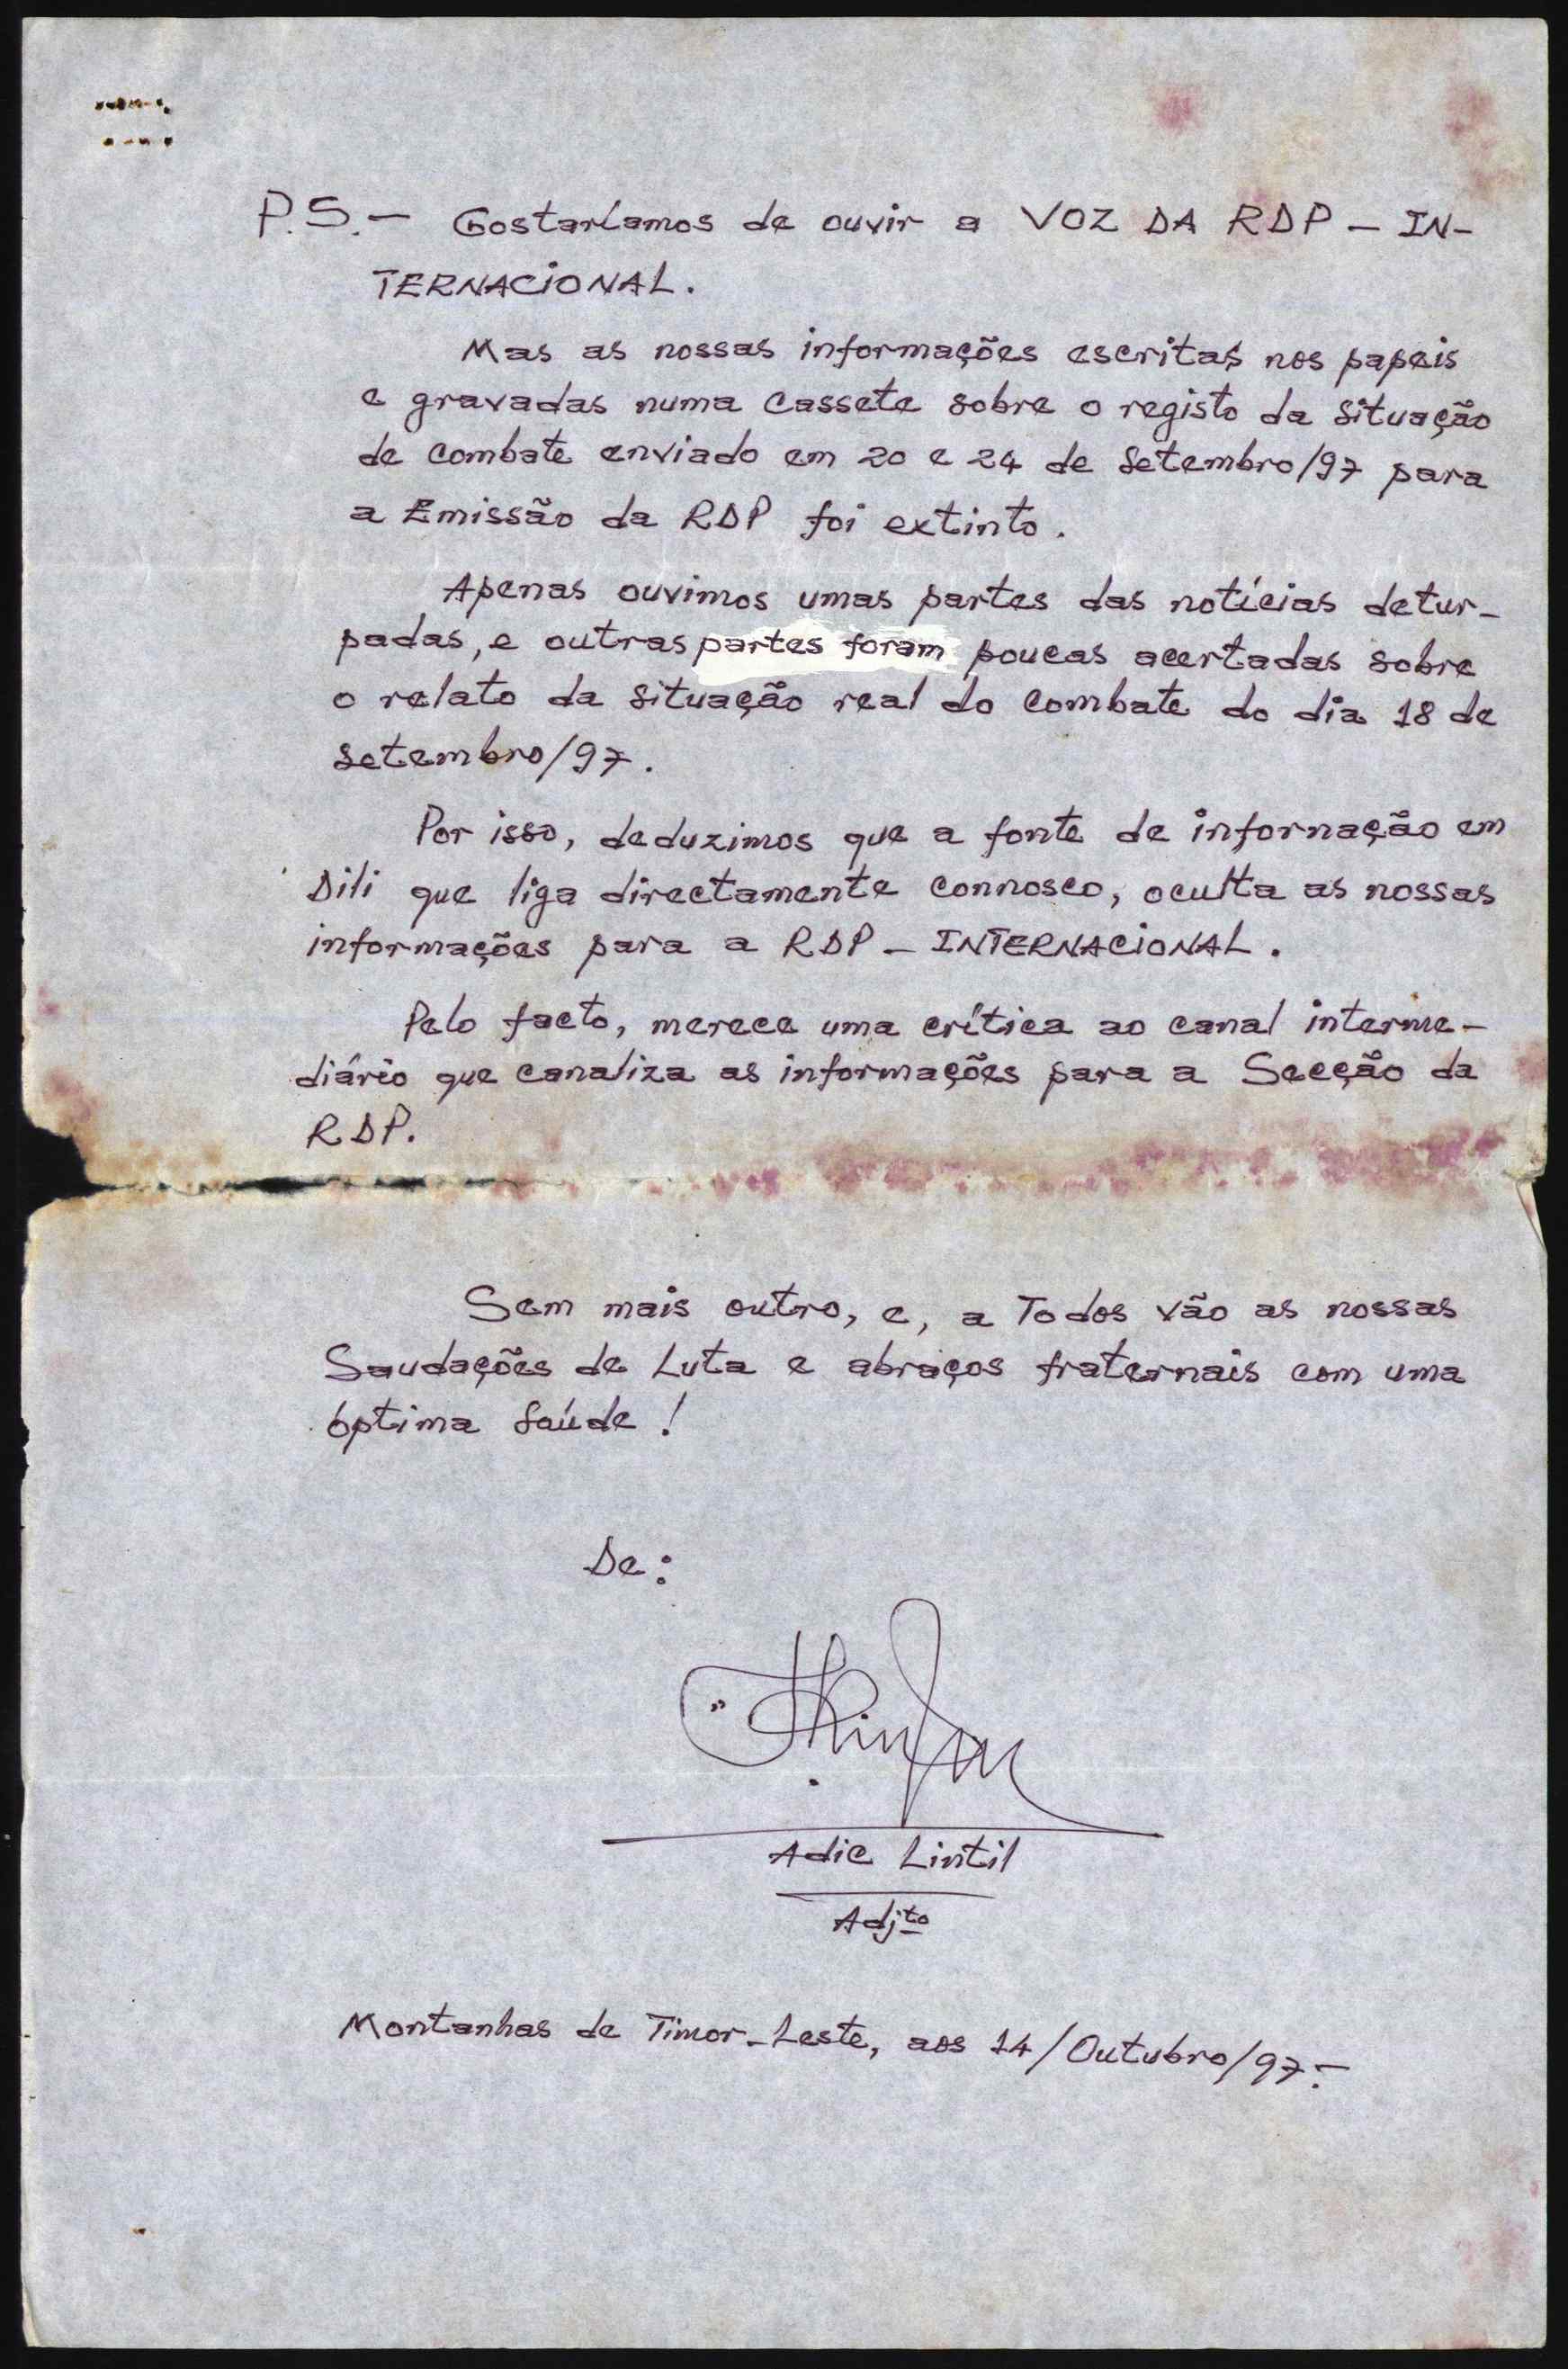 P.S. — Gostaríamos de ouvir a VOZ DA RDP — IN-
TERNACIONAL.
Mas as nossas informações escritas nos papeis
e gravadas numa cassete sobre o registo da situação
de combate enviado em 20 e 24 de Setembro/97 para
a Emissão da RDP foi extinto.
Apenas ouvimos umas partes das notícias detur-
padas, e outras partes foram poucas acertadas sobre
o relato da situação real do combate do dia 18 de
setembro/97.
Por isso, deduzimos que a fonte de infornação em
Dili que liga directamente connosco, oculta as nossas
informações para a RDP — INTERNACIONAL.
Pelo facto, merece uma crítica ao canal interme-
diário que canaliza as informações para a Secção da
RDP.
Sem mais outro, e, a Todos vão as nossas
Saudações de Luta e abraços fraternais com uma
óptima saúde!
De:
Adie Lintil
Adjto
Montanhas de Timor-Leste, aos 14/Outubro/97.-